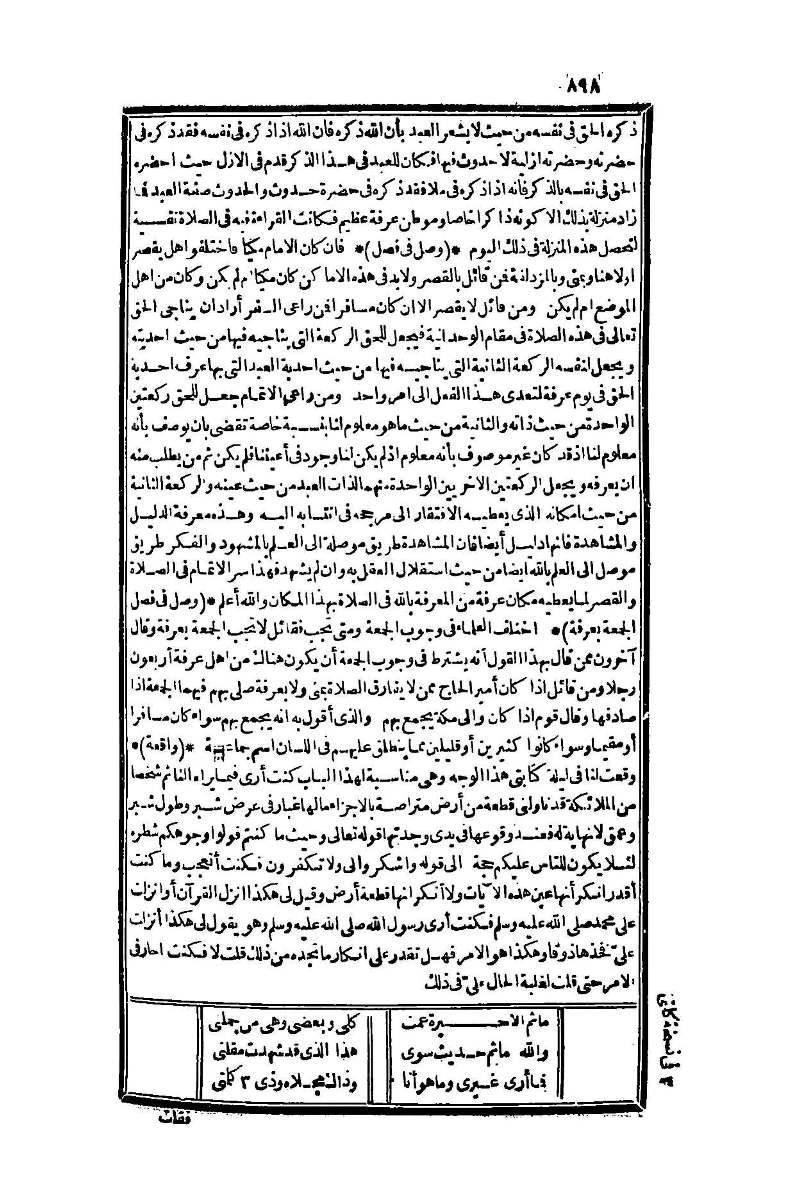 ٨٩٨
ذكره الحق فى نفسه من حيث لا يشعر العبد بأن الله ذكره فان الله اذا ذكره فى نفسه فقد ذكره فى
حضرته وحضرته ازلية لا حدوث فيها فكان للعبد فى هذا الذكر قدم فى الازل حيث احضره
الحق فى نفسه بالذكر فانه اذا ذكره فى ملا فقد ذكره فى حضرة حدوث والحدوث صفة العبد فما
زاد منزلة بذلك الا كونه ذاكرا خاصا وموطن عرفة عظيم فكانت القراءة فيه فى الصلاة نفسية
لتحصل هذه المنزلة فى ذلك اليوم *(وصل فى فصل)* فان كان الامام مكيا فاختلفوا هل يقصر
اولا هنا وبمنى وبالمزدلفة فمن قائل بالقصر ولابد فى هذه الاماكن كان مكيا ام لم يكن وكان من اهل
الموضع ام لم يكن ومن قائل لا يقصر الا ان كان مسافرا فمن راعى السفر أراد ان يناجى الحق
تعالى فى هذه الصلاة فى مقام الوحدانية فيجعل للحق الركعة التى يناجيه فيها من حيث احديته
ويجعل لنفسه الركعة الثانية التى يناجيه فيها من حيث احدية العبد التى بها عرف احدية
الحق فى يوم عرفة لتعدى هذا الفعل الى امر واحد ومن راعى الاتمام جعل للحق ركعتين
الواحدة من حيث ذاته والثانية من حيث ما هو معلوم لنا بنسبة خاصة تقضى بان يوصف بأنه
معلوم لنا اذ قد كان غير موصوف بأنه معلوم اذ لم يكن لنا وجود فى أعيننا فلم يكن ثم من يطلب منه
ان يعرفه ويجعل الركعتين الاخريين الواحدة منهما لذات العبد من حيث عينه والركعة الثانية
من حيث امكانه الذى يعطيه الافتقار الى مرجحه فى انتسابه اليه وهذه معرفة الدليل
والمشاهدة فانها دليل أيضا فان المشاهدة طريق موصلة الى العلم بالمشهود والفكر طريق
موصل الى العلم بالله ايضا من حيث استقلال العقل به وان لم يشهد فهذا سر الاتمام فى الصلاة
والقصر لما يعطيه مكان عرفة من المعرفة بالله فى الصلاة بهذا المكان والله أعلم *(وصل فى فصل
الجمعة بعرفة)* اختلف العلماء فى وجوب الجمعة ومتى تجب فقائل لا تجب الجمعة بعرفة وقال
آخرون ممن قال بهذا القول أنه يشترط فى وجوب الجمعة أن يكون هناك من اهل عرفة أربعون
رجلا ومن قائل اذا كان أمير الحاج ممن لا يفارق الصلاة بمنى ولا بعرفة صلى بهم فيهما الجمعة اذا
صادفها وقال قوم اذا كان والى مكة يجمع بهم والذى أقول به انه يجمع بهم سواء كان مسافرا
أو مقيما وسواء كانوا كثيرين أو قليلين مما ينطلق عليهم فى اللسان اسم جماعة *(واقعة)*
وقعت لنا فى ليلة كتابتى هذا الوجه وهى مناسبة لهذا الباب كنت أرى فيما يراه النائم شخصا
من الملائكة قد ناولنى قطعة من أرض متراصة بالاجزاء مالها غبار فى عرض شبر وطول شبر
وعمق لا نهاية له فعند وقوعها فى يدى وجدتها قوله تعالى وحيث ما كنتم فولوا وجوهكم شطره
لئلا يكون للناس عليكم حجة الى قوله واشكروا لى ولا تكفرون فكنت أتعجب وما كنت
أقدر انكر أنها عين هذه الآيات ولا أنكر انها قطعة أرض وقيل لى هكذا انزل القرآن أو انزلت
على محمد صلى الله عليه وسلم فكنت أرى رسول الله صلى الله عليه وسلم وهو يقول لى هكذا أنزلت
على نخذها ذوقا وهكذا هو الامر فهل تقدر على انكار ما تجده من ذلك قلت لا فكنت احار فى
الامر حتى قلت لغلبة الحال على فى ذلك
ما ثم الا حيرة عمت كلى وبعضى وهى من جملتى
والله ما ثم حديث سوى هذا الذى قد شهدت مقلتى
فما أرى غيرى وما هو أنا وذا لتجلاه وذى ٣ كلمتى
٣ فى نسخة
فقات